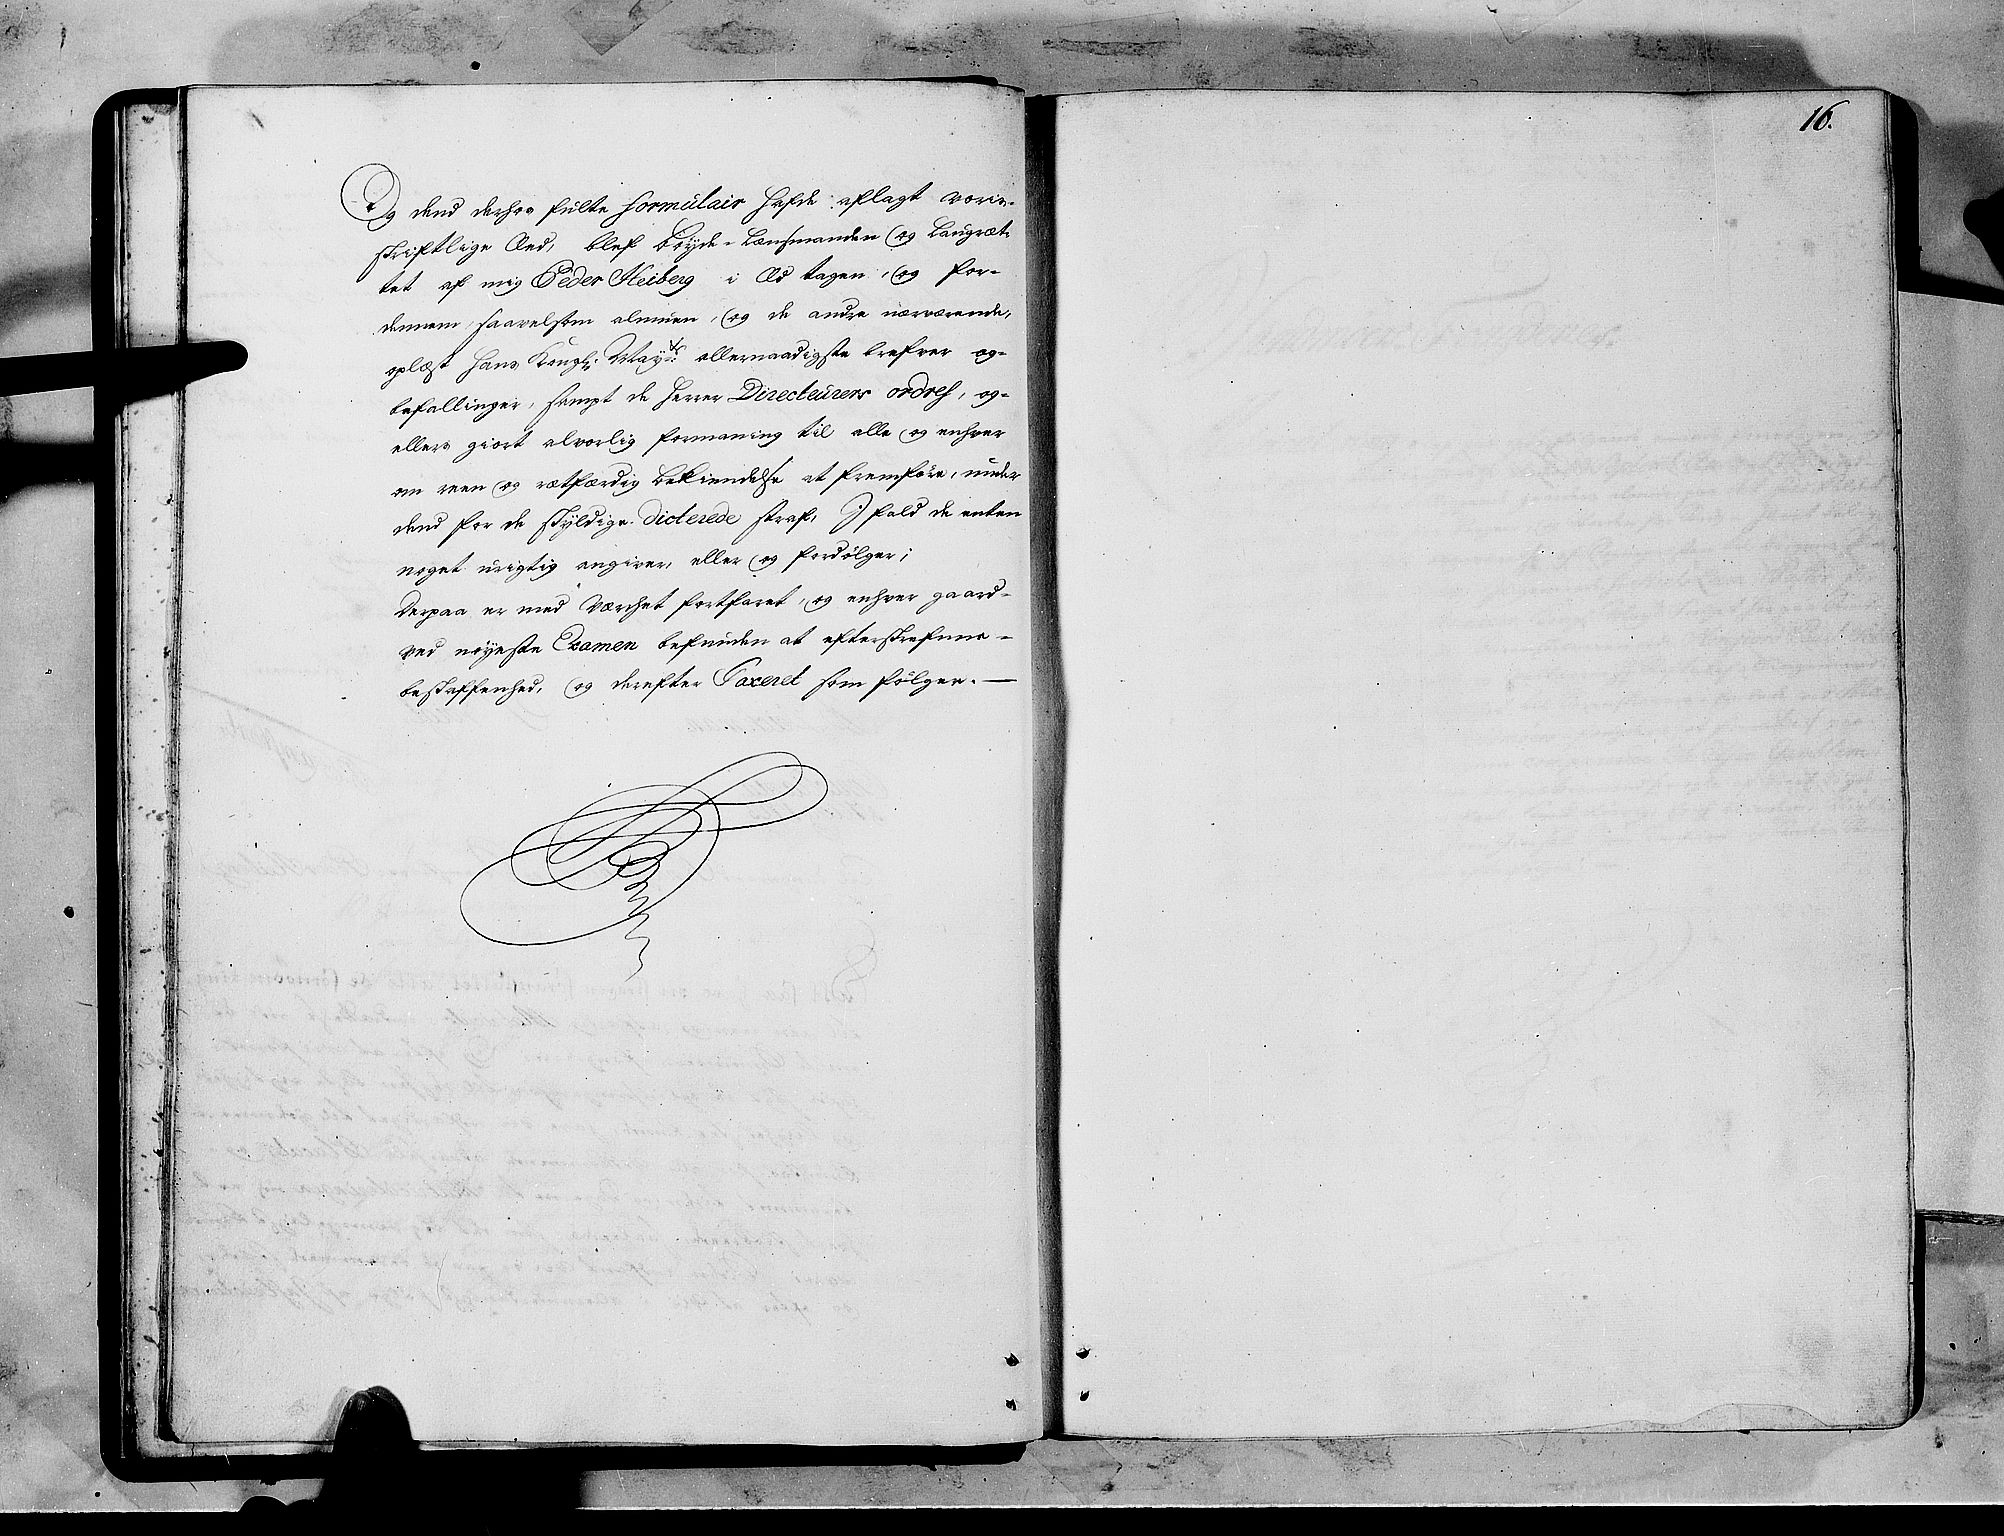 Og dend derhos fulte formulair hafde aflagt
skriftlige Eed, blef Bøyde-Lensmanden og Laugræt-
tet af mig Peder Heiberg i Æd tagen, og for-
dennem, saavelsom almuen, og de andre nærværende,
oplæst Hans Kongl: May.ts allernaadigste brefver og-
befallinger, sampt de Herrer Directeurers ordres, og-
ellers giort alvorlig formaning til alle og enhver
om reen og rætfærdig bekiendelse at fremføre, under
dend for de skyldige dicterede straf, J fald de enten
noget urigtig angiver, eller og fordølger;
Derpaa er med Værchet fortfaret, og enhver gaard-
ved nøyeste Examen befunden at efterskrefvne-
beskaffenhed, og derefter Taxeret som følger.—
16.